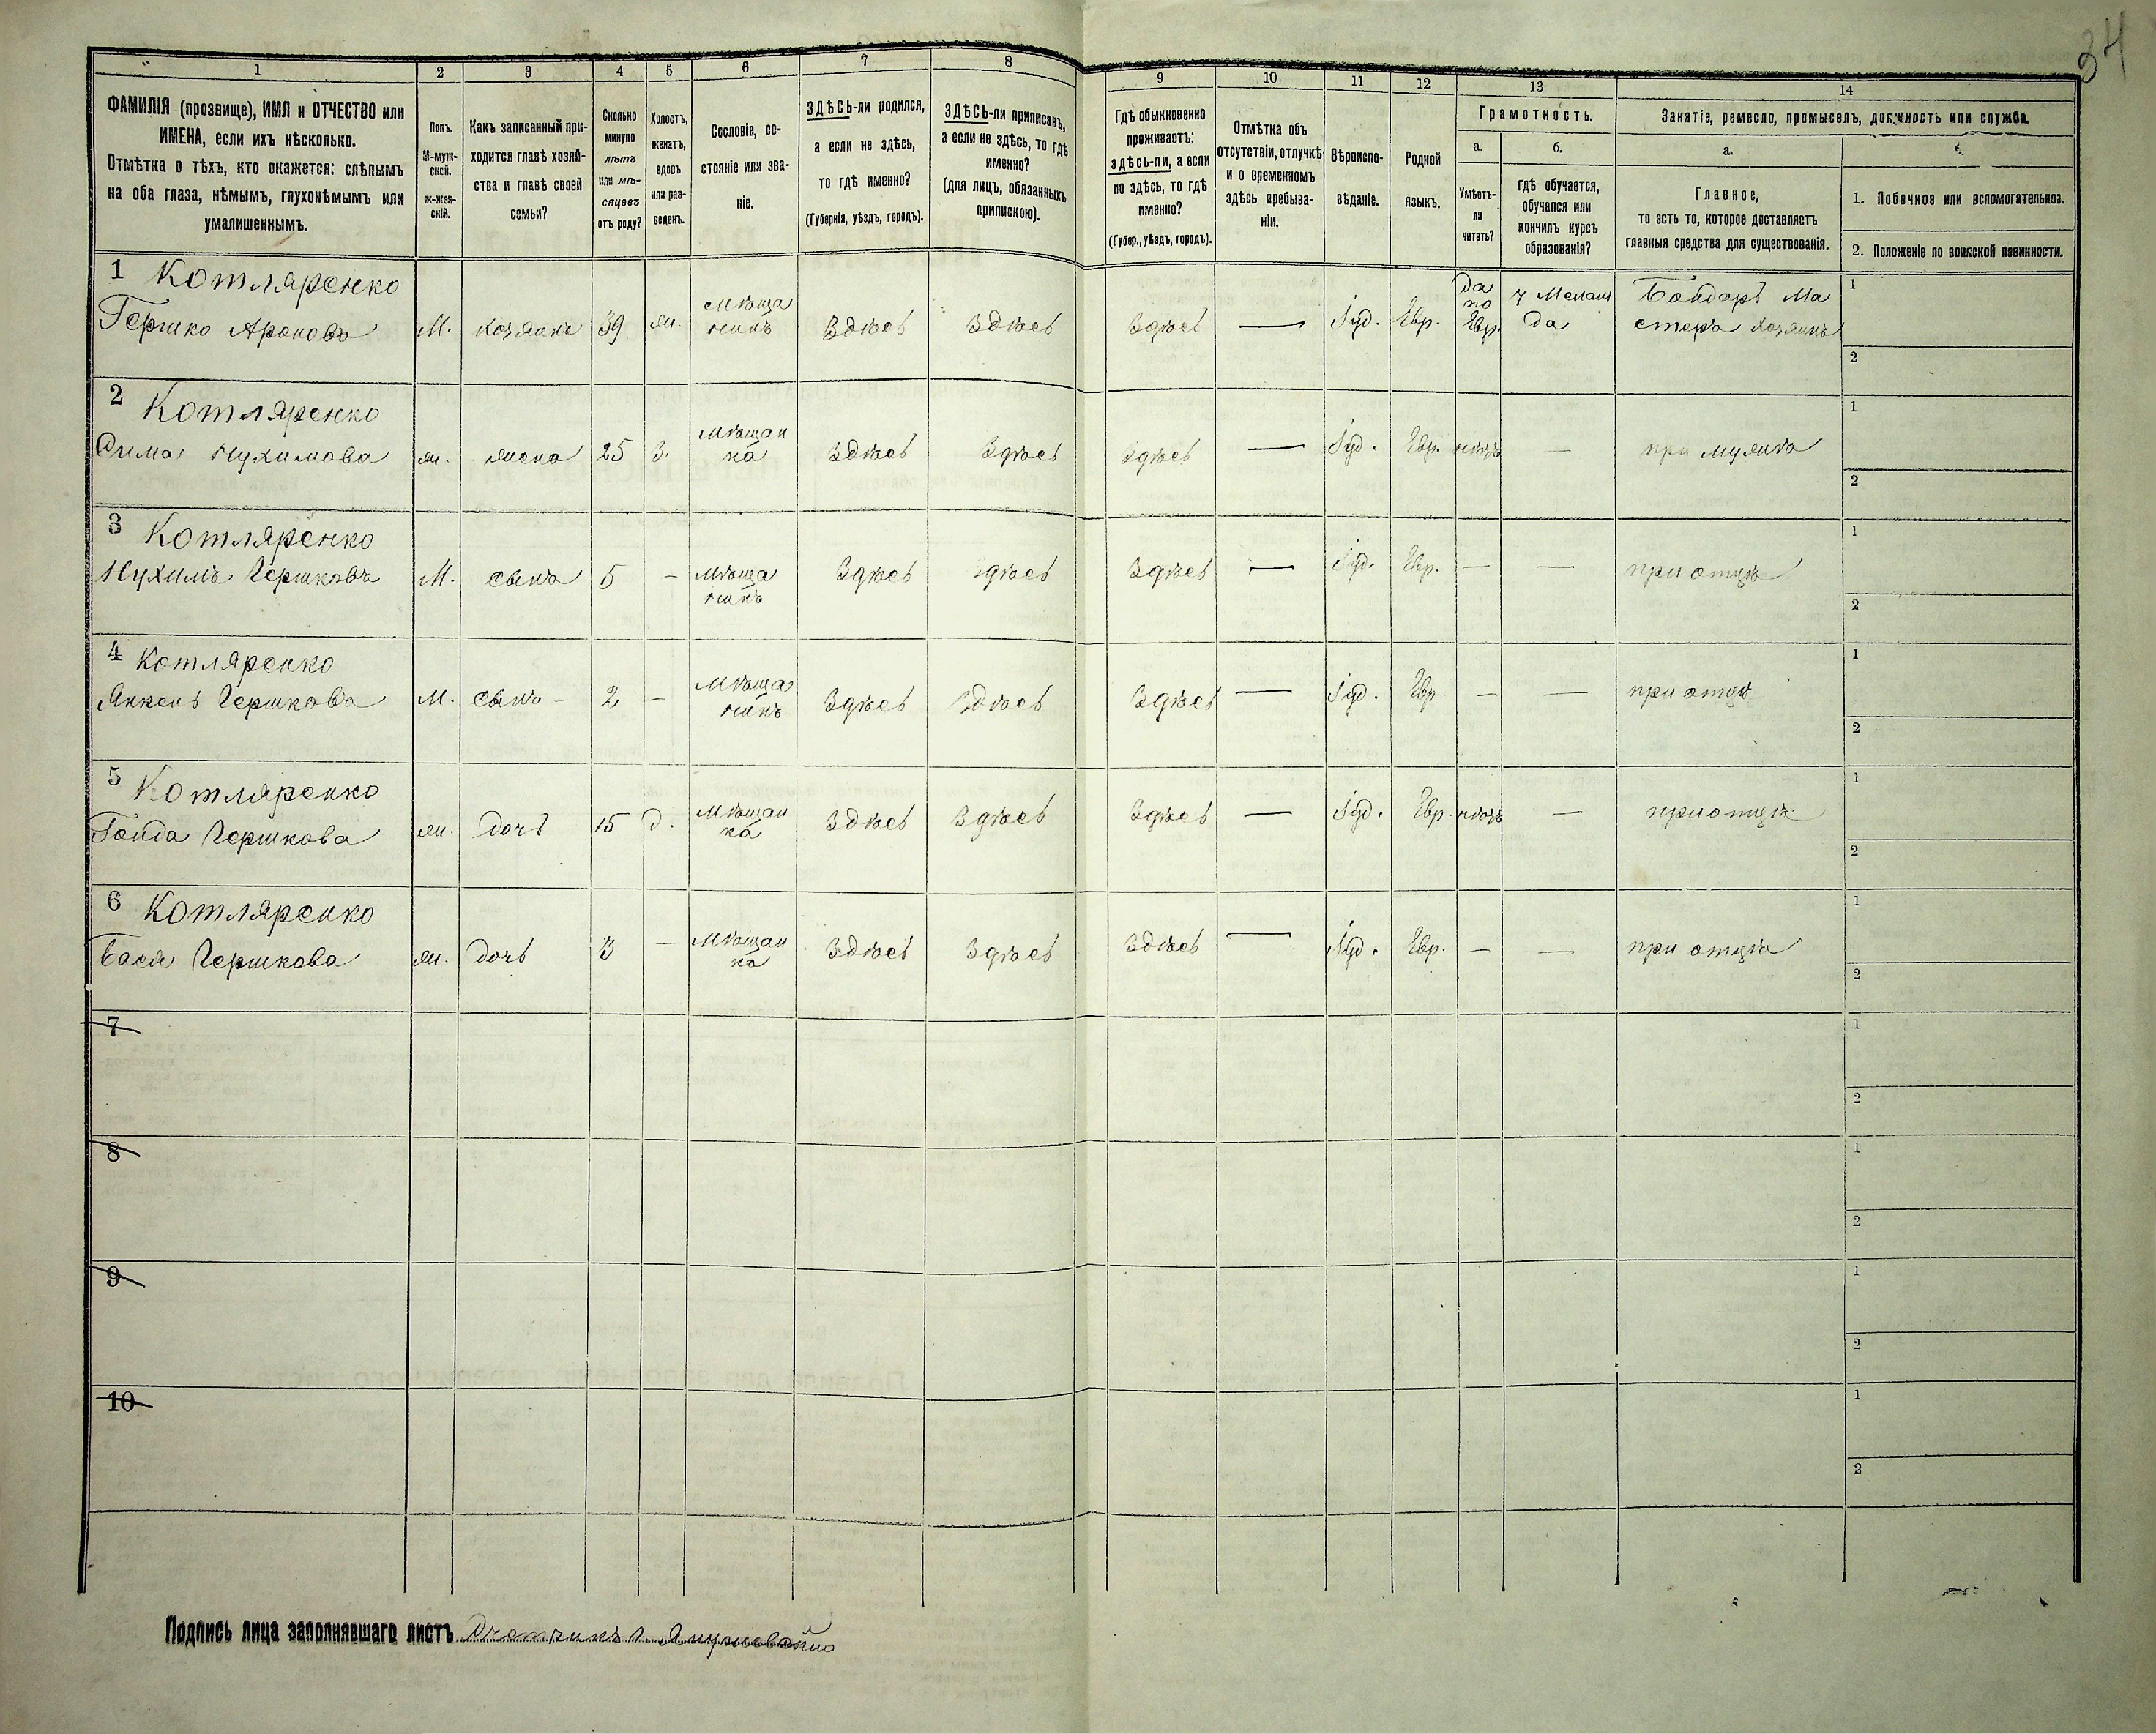 34
1 2 3 4 5 6 7 8 9 10 11 12 13 14
ФАМИЛІЯ (прозвище), ИМЯ и ОТЧЕСТВО или
ИМЕНА, если ихъ нѣсколько.
Отмѣтка о тѣхъ, кто окажется: слѣпымъ
на оба глаза, нѣмымъ, глухонѣмымъ или
умалишеннымъ.
Полъ.
М-муж-
ской.
ж-жен-
скій.
Какъ записанный при-
ходится главѣ хозяй-
ства и главѣ своей
семьи?
Сколько
минуло
лѣтъ
или мѣ-
сяцевъ
отъ роду?
Холостъ,
женатъ,
вдовъ
или раз-
веденъ.
Сословіе, со-
стояніе или зва-
ніе.
ЗДѢСЬ-ли родился,
а если не здѣсь,
то гдѣ именно?
(Губернія, уѣздъ, городъ).
ЗДѢСЬ-ли приписанъ,
а если не здѣсь, то гдѣ
именно?
(для лицъ, обязанныхъ
припискою).
Гдѣ обыкновенно
проживаетъ:
здѣсь-ли, а если
не здѣсь, то гдѣ
именно?
(Губер., уѣздъ, городъ).
Отмѣтка объ
отсутствіи, отлучкѣ
и о временномъ
здѣсь пребыва-
ніи.
Вѣроиспо-
вѣданіе.
Родной
языкъ.
Грамотность.
а.
Умѣетъ-
ли
читать?
б.
гдѣ обучается,
обучался или
кончилъ курсъ
образованія?
Занятіе, ремесло, промыселъ, должность или служба.
а.
Главное,
то есть то, которое доставляетъ
главныя средства для существованія.
1. Побочное или вспомогательное.
2. Положеніе по воинской повинности.
1 Котляренко
Гершко Ароновъ М. хозяинъ 39 ж. Мѣща
нинъ Здѣсь Здѣсь Здѣсь — Іуд. Евр. да
по
Евр. у Мелам
да Бондарь Ма
стеръ хозяинъ
1
2
2 Котляренко
Сима Нухимова ж. жена 25 З. Мѣщан
ка Здѣсь Здѣсь Здѣсь — Іуд. Евр. нѣтъ — при мужѣ
1
2
3 Котляренко
Нухимъ Гершковъ М. сынъ 5 — Мѣща
нинъ Здѣсь Здѣсь Здѣсь — Іуд. Евр. — — при отцѣ
1
2
4 Котляренко
Янкель Гершковъ М. сынъ 2 — Мѣща
нинъ Здѣсь Здѣсь Здѣсь — Іуд. Евр. — — при отцѣ
1
2
5 Котляренко
Гольда Гершкова ж. дочь 15 д. Мѣщан
ка Здѣсь Здѣсь Здѣсь — Іуд. Евр. нѣтъ — при отцѣ
1
2
6 Котляренко
Бася Гершкова ж. дочь 3 — Мѣщан
ка Здѣсь Здѣсь Здѣсь — Іуд. Евр. — — при отцѣ
1
2
7
1
2
8
1
2
9
1
2
10
1
2
Подпись лица заполнявшаго листъ